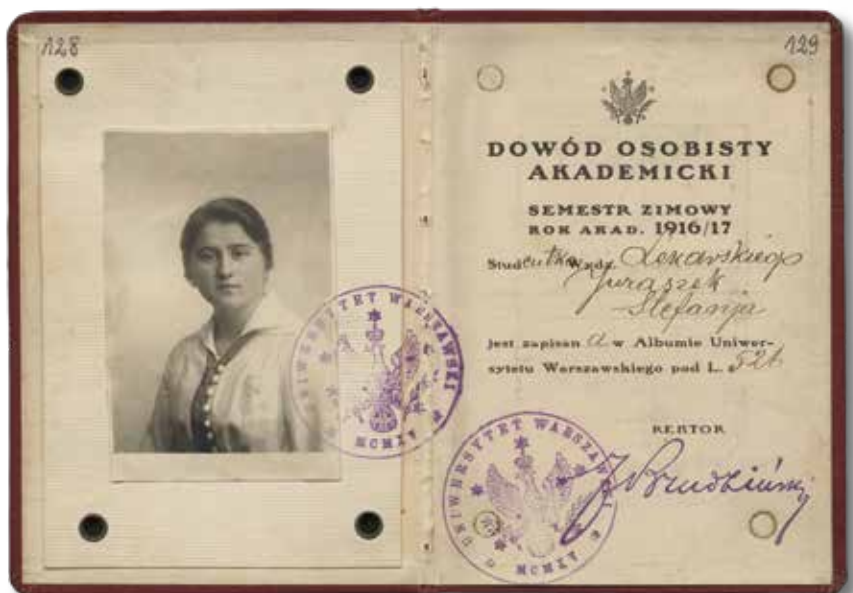 128
UNIWERSYTET WARSZAWSKI
MCMXV
129
DOWÓD OSOBISTY
AKADEMICKI
SEMESTR ZIMOWY
ROK AKAD. 1916/17
Studentka Wydz. Lekarskiego
Juraszek
Stefanja
jest zapisana w Albumie Uniwer-
sytetu Warszawskiego pod L. 521
REKTOR
J Brudziński
UNIWERSYTET WARSZAWSKI
MCMXV